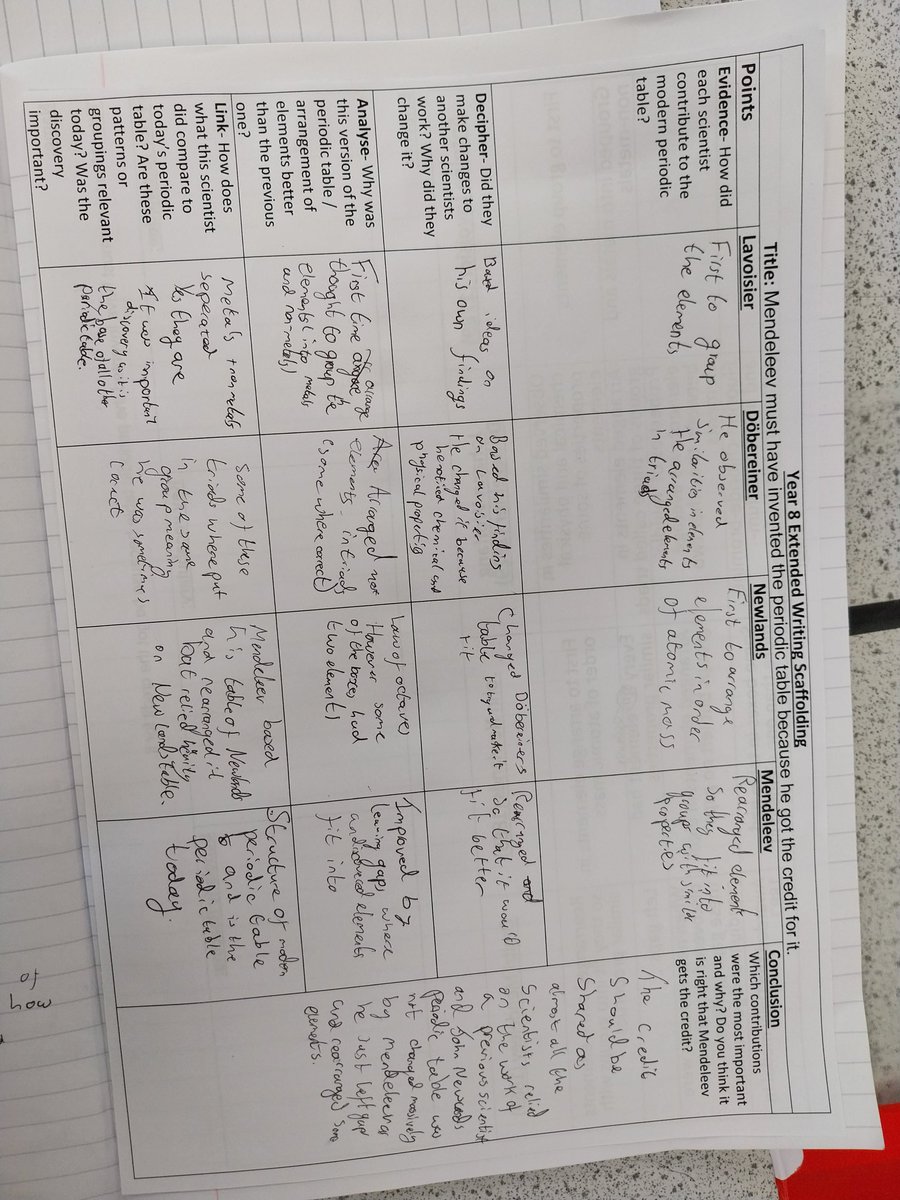 Year 8 Extended Writing Scaffolding
Title: Mendeleev must have invented the periodic table because he got the credit for it.
Points
Lavoisier
Döbereiner
Newlands
Mendeleev
Conclusion
Evidence- How did
each scientist
contribute to the
modern periodic
table?
First to group
the elements
He observed
similarities in elements
He arranged elements
in triads
First to arrange
elements in order
of atomic mass
Rearranged element
so they fit into
groups with similar
properties
Which contributions
were the most important
and why? Do you think it
is right that Mendeleev
gets the credit?
The credit
should be
shared as
almost all the
Scientists relied
on the work of
a previous scientist
and John Newlands
periodic table was
not changed massively
by mendeleev as
he just left gaps
and rearranged some
elements.
Decipher- Did they
make changes to
another scientists
work? Why did they
change it?
Based ideas on
his own findings
Based his finding
on Lavosier
He changed it because
he noticed chemical and
physical properties
Changed Döbereiners
table to try and make it
fit
Rearranged and
so that it would
fit better
Analyse- Why was
this version of the
periodic table /
arrangement of
elements better
than the previous
one?
First time arrange
thought to group the
elements (into metals
and non-metals)
Arranged not
elements in triads
(some where correct)
Law of octaves
However some
of the boxes had
two elements
Improved by
leaving gaps where
undiscovered elements
fit into
Link- How does
what this scientist
did compare to
today's periodic
table? Are these
patterns or
groupings relevant
today? Was the
discovery
important?
Metals + nonmetals
seperated
Yes they are
It was important
discovery as it is
the base of all other
periodic table.
Some of these
triads where put
in the same
group meaning
he was sometimes
Mendeleev based
his table of Newlands
and rearranged it
but relied heavily
on Newlands table.
Structure of modern
periodic table
and is the
periodic table
today.
of
how